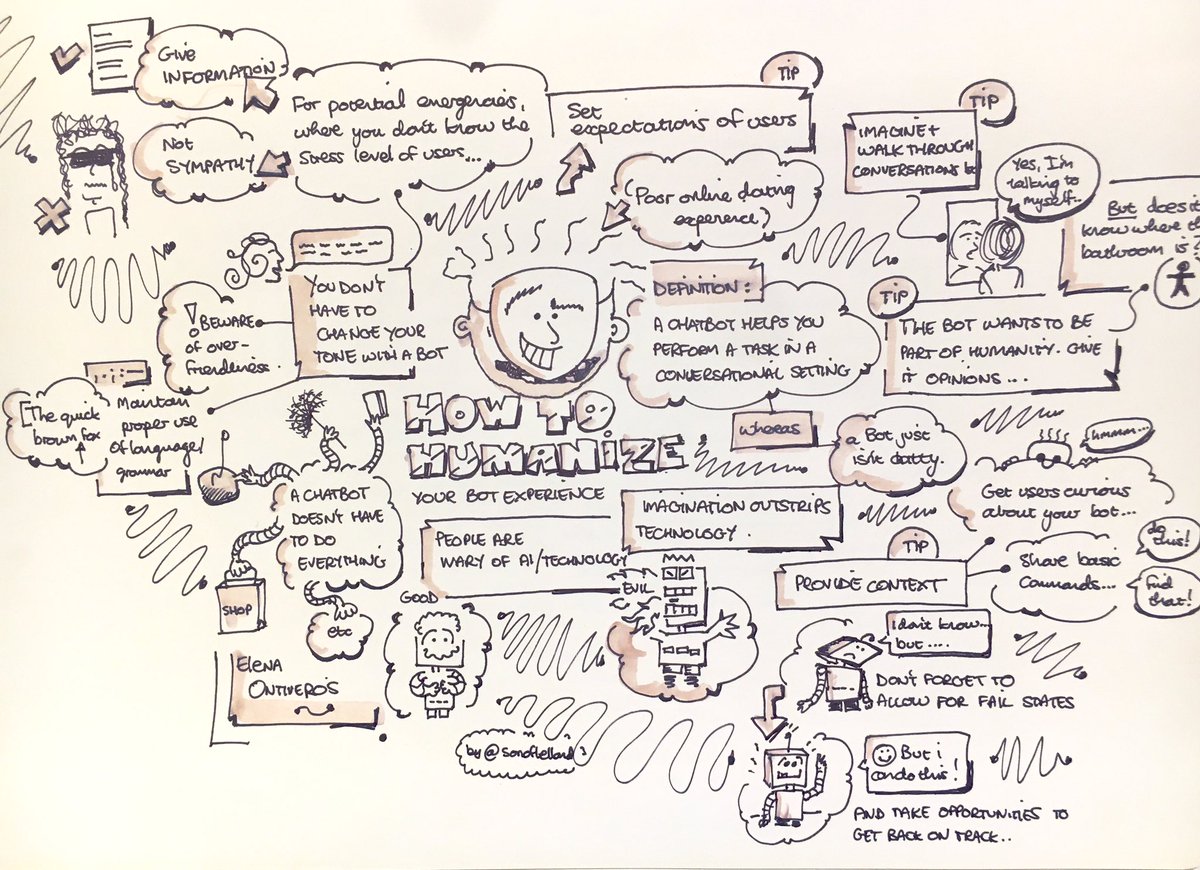 GIVE
INFORMATION
NOT
SYMPATHY
For potential emergencies,
where you don't know the
stress level of users...
TIP
Set
expectations of users
(Poor online dating
experience)
TIP
IMAGINE +
WALK THROUGH
CONVERSATIONS
Yes, I'm
talking to
myself..
But does it
know where th
bathroom is
YOU DON'T
HAVE TO
CHANGE YOUR
TONE WITH A BOT
! BEWARE
of over-
friendliness.
Maintain
proper use
of language/
grammar
[The quick
brown fox
DEFINITION:
A CHATBOT HELPS YOU
PERFORM A TASK IN A
CONVERSATIONAL SETTING
WHEREAS
a Bot just
isn't chatty.
TIP
THE BOT WANTS TO BE
PART OF HUMANITY. GIVE
IT OPINIONS...
HOW TO
HUMANIZE
YOUR BOT EXPERIENCE
A CHATBOT
DOESN'T HAVE
TO DO
EVERYTHING
SHOP
etc
PEOPLE ARE
WARY OF AI/TECHNOLOGY
GOOD
EVIL
IMAGINATION OUTSTRIPS
TECHNOLOGY.
ummm...
Get users curious
about your bot...
TIP
PROVIDE CONTEXT
Share basic
commands....
do
this!
Find
that!
I don't know...
but.....
DON'T FORGET TO
ALLOW FOR FAIL STATES
But i
can do this!
AND TAKE OPPORTUNITIES TO
GET BACK ON TRACK..
ELENA
ONTIVEROS
by @sonofhelland